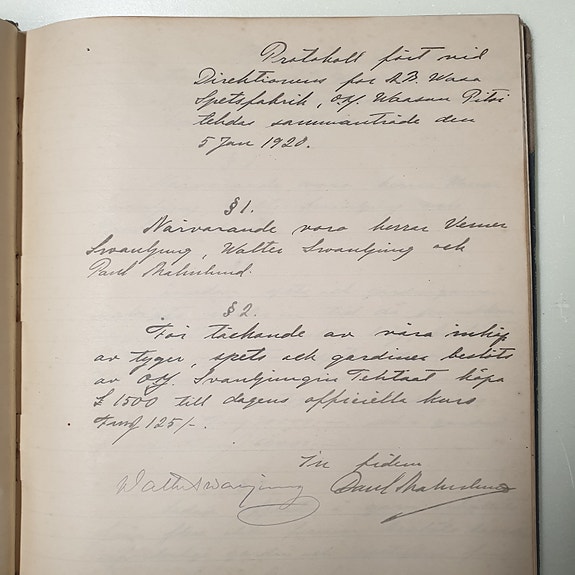 Protokoll fört vid
Direktionens för A.B. Wasa
Spetsfabrik, O.Y. Waasan Pitsi
tehdas sammanträde den
5 Jan 1920.
§ 1.
Närvarande voro herrar Verner
Svanljung, Walter Svanljung och
Paul Malmlund.
§ 2.
För täckande av våra inköp
av tyger, spets och gardiner beslöts
av O.Y. Svanljungin Tehtaat köpa
£ 1500 till dagens officiella kurs
Fmf 125/-.
In fidem
Walter Svanljung Paul Malmlund